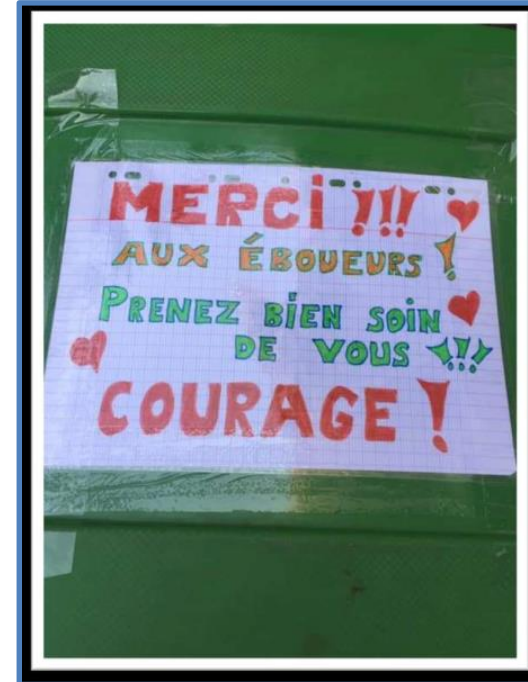 MERCI !!!
AUX ÉBOUEURS !
PRENEZ BIEN SOIN
DE VOUS !!!
COURAGE !